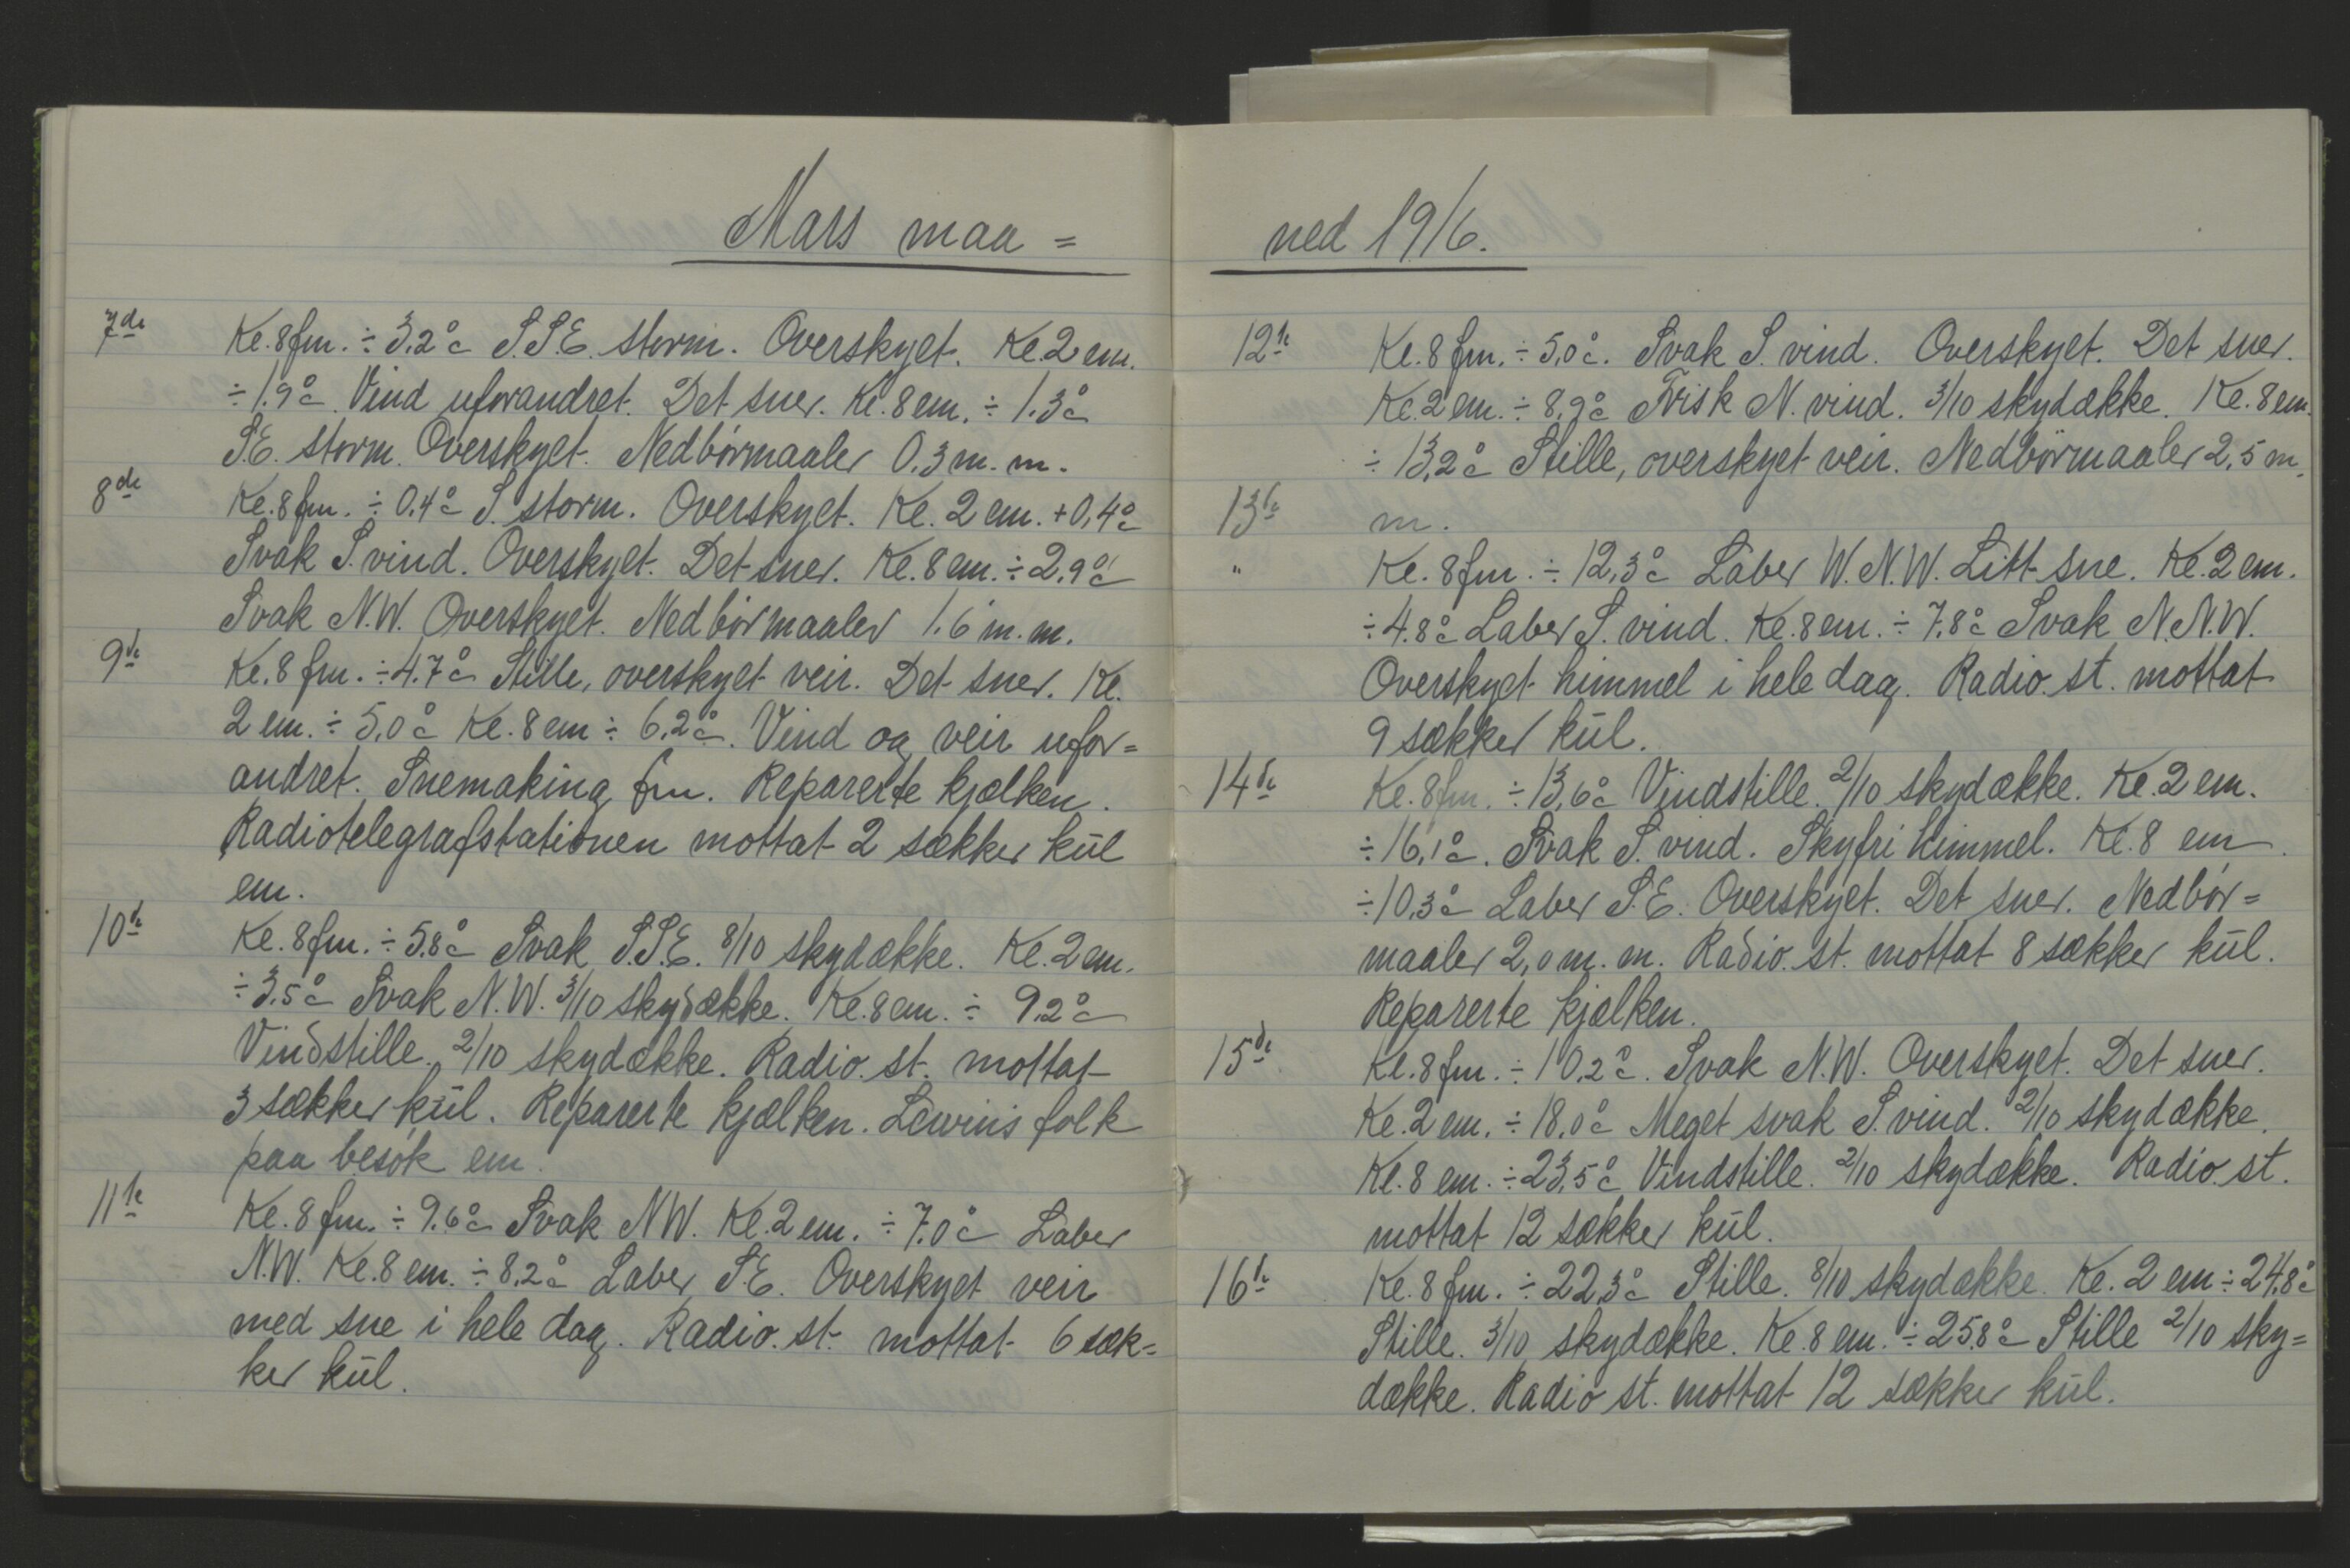 Mars maa=
7de Kl. 8 fm. ÷ 3,2°c S.S.E. storm. Overskyet. Kl. 2 em.
÷ 1.9°c. Vind uforandret. Det sner. Kl. 8 em. ÷ 1.3°c
S.E. storm. Overskyet. Nedbörmaaler 0,3 m. m.
8de Kl. 8 fm. ÷ 0.4°c S. storm. Overskyet. Kl. 2 em. + 0,4°c
Svak S. vind. Overskyet. Det sner. Kl. 8 em. ÷ 2,9°c
Svak N.W. Overskyet. Nedbörmaaler 1.6 m. m.
9de Kl. 8 fm. ÷ 4.7°c Stille, overskyet veir. Det sner. Kl.
2 em. ÷ 5,0°c Kl. 8 em ÷ 6,2°c. Vind og veir ufor=
andret. Snemaking fm. Reparerte kjælken.
Radiotelegrafstationen mottat 2 sækker kül
em.
10de Kl. 8 fm. ÷ 5.8°c Svak S.S.E. 8/10 skydække. Kl. 2 em.
÷ 3.5°c Svak N.W. 3/10 skydække. Kl. 8 em. ÷ 9.2°c
Vindstille. 2/10 skydække. Radio. st. mottat
3 sækker kül. Reparerte kjælken. Lewins folk
paa besøk em.
11te Kl. 8 fm. ÷ 9.6°c Svak NW. Kl. 2 em. ÷ 7.0°c Laber
N.W. Kl. 8 em. ÷ 8,2°c Laber S.E. Overskyet veir
med sne i hele dag. Radio. st. mottat 6 sæk=
ker kül.
ned 1916.
12te Kl. 8 fm. ÷ 5,0°c. Svak S. vind. Overskyet. Det sner.
Kl. 2 em. ÷ 8,9°c Frisk N. vind. 3/10 skydække. Kl. 8 em.
÷ 13,2°c Stille, overskyet veir. Nedbörmaaler 2,5 m.
13de m.
" Kl. 8 fm. ÷ 12,3°c Laber W.N.W. Litt sne. Kl. 2 em.
÷ 4.8°c Laber S. vind. Kl. 8 em. ÷ 7,8°c Svak N.N.W.
Overskyet himmel i hele dag. Radio. st. mottat
9 sækker kül.
14de Kl. 8 fm. ÷ 13,6°c Vindstille. 2/10 skydække. Kl. 2 em.
÷ 16,1°c. Svak S. vind. Skyfri himmel. Kl. 8 em.
÷ 10,3°c Laber S.E. Overskyet. Det sner. Nedbør=
maaler 2,0 m. m. Radio. st. mottat 8 sækker kül.
Reparerte kjælken.
15de Kl. 8 fm. ÷ 10,2°c. Svak N.W. Overskyet. Det sner.
Kl. 2 em. ÷ 18,0°c Meget svak S. vind. 2/10 skydække.
Kl. 8 em. ÷ 23,5°c Vindstille. 2/10 skydække. Radio. st.
mottat 12 sækker kül.
16de Kl. 8 fm. ÷ 22,3°c Stille. 8/10 skydække. Kl. 2 em ÷ 24,8°c
Stille. 3/10 skydække. Kl. 8 em. ÷ 25.8°c Stille 2/10 sky=
dække. Radio st. mottat 12 sækker kül.